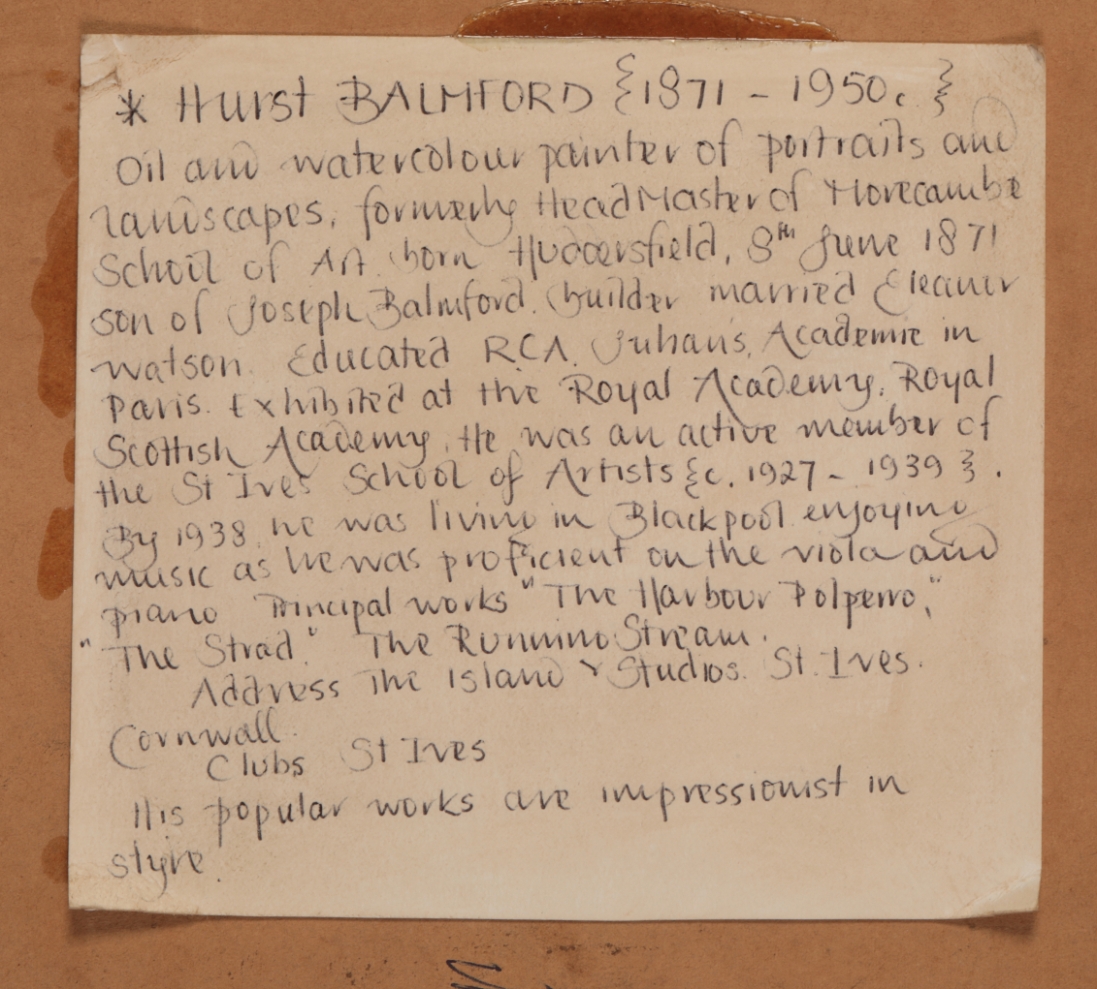 * Hurst BALMFORD {1871 - 1950. }
Oil and watercolour painter of portraits and
landscapes, formerly Head Master of Morecambe
School of Art. born Huddersfield, 8th June 1871
son of Joseph Balmford. builder married Eleanor
Watson. Educated RCA. Julian's, Academie in
Paris. Exhibited at the Royal Academy, Royal
Scottish Academy. He was an active member of
the St Ives School of Artists {c. 1927 - 1939 }.
By 1938, he was living in Blackpool enjoying
music as he was proficient on the viola and
piano Principal works "The Harbour Polperro,"
"The Strad." The Running Stream.
Address The Island Studios. St. Ives.
Cornwall.
Clubs St Ives
His popular works are impressionist in
style.